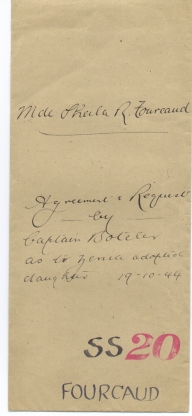 Mde Sheila R. Fourcaud
Agreement & Request
by
Captain Boteler
as to
adopted
daughter 19-10-44
SS20
FOURCAUD